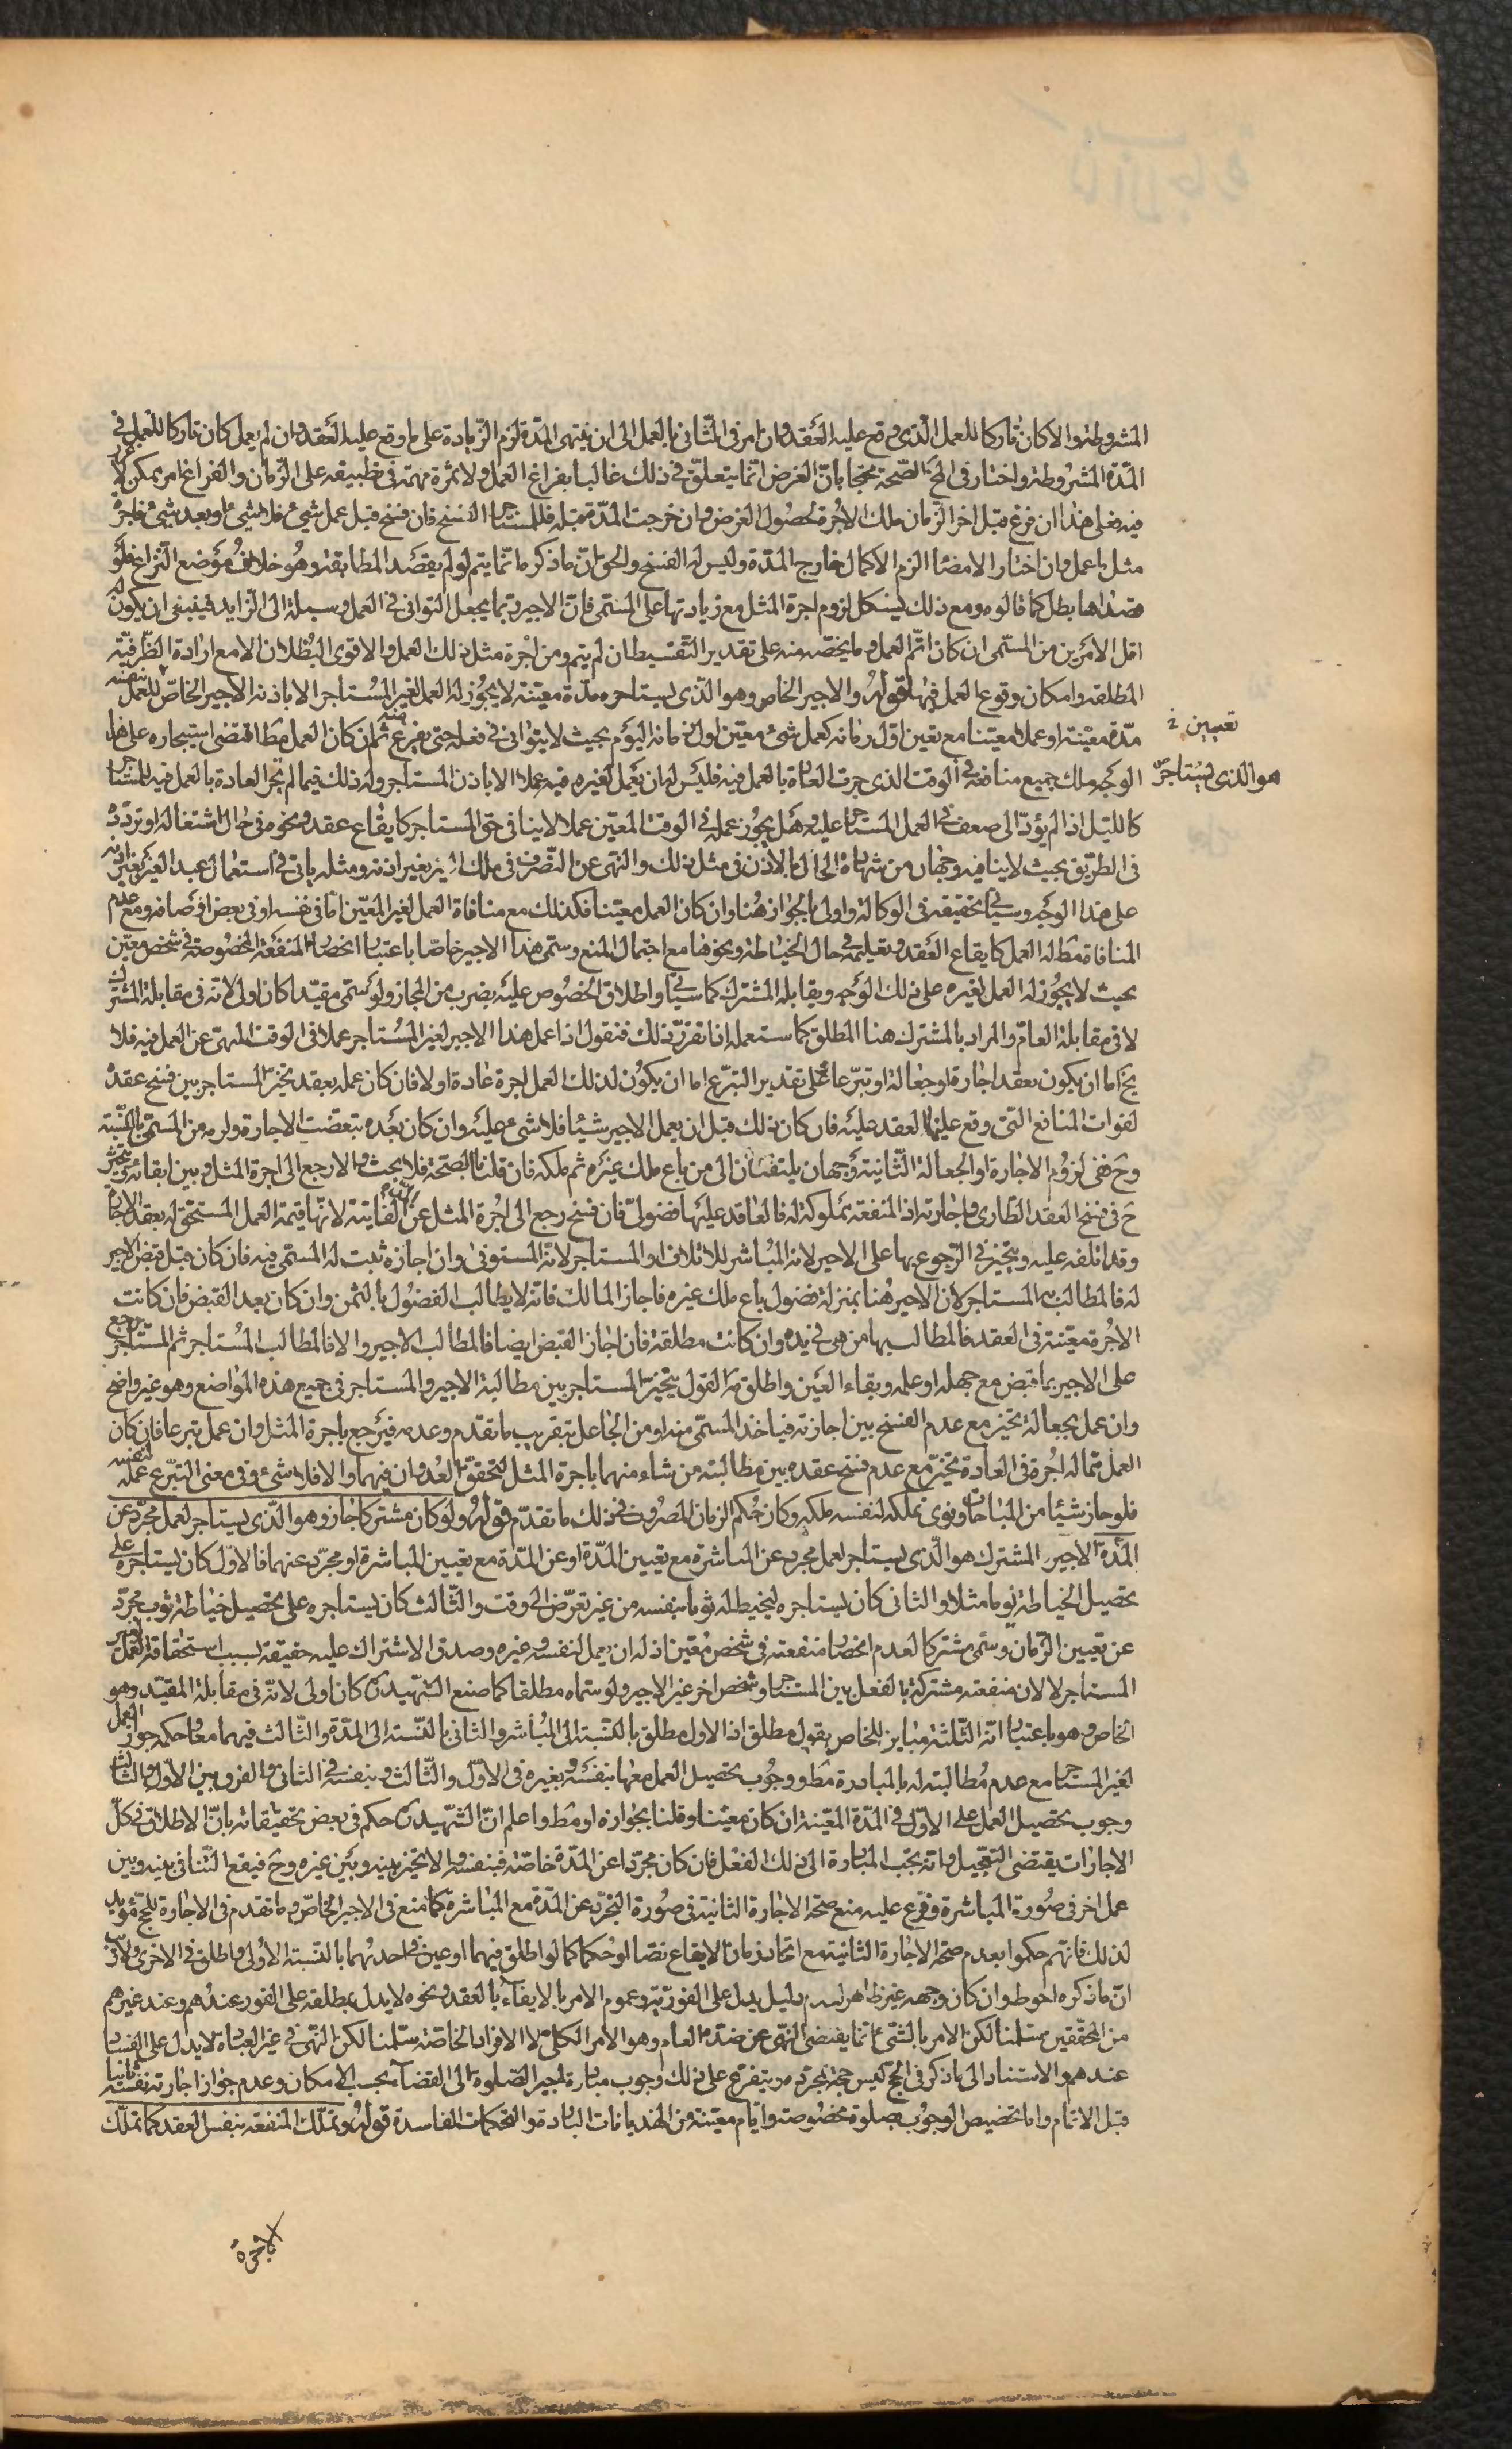 المشروطة والا كان تاركا للعمل الذى وقع عليه العقد وان امر فى الثانى بالعمل الى ان ينتهى المدّة لزم الزيادة على ما وقع عليه العقد وان لم يعمل كان تاركا للعمل فى
المدّة المشروطة واختار فى لف الصّحة محتجا بانّ الغرض انّما يتعلّق فى ذلك غالبا بفراغ العمل ولا ثمرة مهمّة فى تطبيقه على الزّمان والفراغ امر يمكن لا غرر
فيه فعلى هذا ان فرغ قبل اخر الزمان ملك الاجرة لحصول الغرض وان خرجت المدّة قبله فللمستاجر الفسخ فان فسخ قبل عمل شىء فلا شىء او بعد شىء فاجرة
مثل ما عمل وان اختار الامضاء الزم الاكمال خارج المدّة وليس له الفسخ والحق انّ ما ذكره انّما يتم لو لم يقصد المطابقة وهو خلاف موضع النزاع فلو
قصداها بطل كما قالوه ومع ذلك يشكل لزوم اجرة المثل مع زيادتها على المسمى فانّ الاجير ربما يجعل التوانى فى العمل وسيلة الى الزايد فينبغى ان يكون له
اقل الامرين من المسمّى ان كان اتمّ العمل وما يخصّه منه على تقدير التقسيط ان لم يتم ومن اجرة مثل ذلك العمل والاقوى البطلان الا مع ارادة الظرفيّة
المطلقه وامكان وقوع العمل فيها قوله والاجير الخاص وهو الّذى يستاجره مدّة معيّنة لا يجوز له العمل لغير المستاجر الا باذنه الاجير الخاصّ للعمل بنفسه
تعيين خ
مدّة معيّنة او عملا معيّنا مع تعين اوّل زمانه كعمل شىء معيّن اول زمانه اليوم بحيث لا يتوانى فى فعله حتى يفرغ منه ثم ان كان العمل مطا اقتضى استيجاره على هذا
هو الذى يستاجر
الوجه ملك جميع منافعه فى الوقت الذى جرت العادة بالعمل فيه فليس له ان يعمل لغيره فيه عملا الا باذن المستاجر وله ذلك فيما لم تجر العادة بالعمل فيه للمستاجر
كالليل اذا لم يؤدّ الى ضعف فى العمل المستاجر عليه وهل يجوز عمله فى الوقت المعيّن عملا لا ينافى حق المستاجر كايقاع عقد ونحوه فى حال اشتغاله او تردّده
فى الطّريق بحيث لا ينافيه وجهان من شهادة الحال بالاذن فى مثل ذلك والنهى عن التصرّف فى ملك الغير بغير اذنه ومثله ياتى فى استعمال عبد الغير بغير اذنه
على هذا الوجه وسيأتى تحقيقه فى الوكالة واولى بالجواز هنا وان كان العمل معيّنا فكذلك مع منافاة العمل لغير المعيّن اما فى نفسه او فى بعض اوصافه ومع عدم
المنافاة مطا له العمل كايقاع العقد وتعليمه فى حال الخياطة ونحوها مع احتمال المنع وسمّى هذا الاجير خاصّا باعتبار انحصار المنفعة المخصوصة فى شخص معيّن
بحيث لا يجوز له العمل لغيره على ذلك الوجه ويقابله المشترك كما سيأتى واطلاق الخصوص عليه بضرب من المجاز ولو سمّى مقيّدا كان اولى لانّه فى مقابلة المشترك
لا فى مقابلة العامّ والمراد بالمشترك هنا المطلق كما ستعمله اذا تقرّر ذلك فنقول اذا عمل هذا الاجير لغير المستاجر عملا فى الوقت المنهىّ عن العمل فيه فلا
يخ اما ان يكون بعقد اجارة او جعالة او تبرّعا وعلى تقدير التبرّع اما ان يكون لذلك العمل اجرة عادة او لا فان كان عمله بعقد تخيّر المستاجر بين فسخ عقده
لفوات المنافع الّتى وقع عليها العقد عليه فان كان ذلك قبل ان يعمل الاجير شيئا فلا شىء عليه وان كان بعده تبعّضت الاجارة ولزمه من المسمّى بالنّسبة
وح ففى لزوم الاجارة او الجعالة الثّانية وجهان يلتفتان الى من باع ملك غيره ثم ملكه فان قلنا بالصّحة فلا بحث والا رجع الى اجرة المثل وبين ابقائه ويتخيّر
ح فى فسخ العقد الطّارى واجازته اذ المنفعة مملوكة له فالعاقد عليها فضولىّ فان فسخ رجع الى اجرة المثل عن الفايتة لانّها قيمة العمل المستحقّ له بعقد الاجارة
وقد اتلفه عليه ويتخيّر فى الرّجوع بها على الاجير لانه المباشر للاتلاف او المستاجر لانّه المستوفى وان اجازه ثبت له المسمّى فيه فان كان قبل قبض الاجير
له فالمطالب به المستاجر لان الاجير هنا بمنزلة فضولى باع ملك غيره فاجاز المالك فانّه لا يطالب الفضولى بالثمن وان كان بعد القبض فان كانت
الاجرة معيّنة فى العقد فالمطالب بها من هى فى يده وان كانت مطلقة فان اجاز القبض ايضا فالمطالب الاجير والا فالمطالب المستاجر ثم المستاجر يرجع
على الاجير بما قبض مع جهله او علمه وبقاء العين واطلق مّ القول بتخيّر المستاجر بين مطالبة الاجير والمستاجر فى جميع هذه المواضع وهو غير واضح
وان عمل بجعالة تخيّر مع عدم الفسخ بين اجازته فياخذ المسمّى منه او من الجاعل بتقريب ما تقدم وعدمه فيرجع باجرة المثل وان عمل تبرعا فان كان
العمل مما له اجرة فى العادة تخيّر مع عدم فسخ عقده بين مطالبته من شاء منهما باجرة المثل لتحقّق العدوان فيهما والا فلا شىء وفى معنى التبرّع عمله لنفسه
فلو حاز شيئا من المباحات ونوى تملكه لنفسه ملكه وكان حكم الزمان المصروف فى ذلك ما تقدّم قوله ولو كان مشتركا جاز وهو الّذى يستاجر لعمل مجرّد عن
المدّة الاجير المشترك هو الّذى يستاجر لعمل مجرد عن المباشرة مع تعيين المدّة او عن المدّة مع تعيين المباشرة او مجرّد عنهما فالاوّل كان يستاجره على
تحصيل الخياطة يوما مثلا والثانى كان يستاجره ليخيط له ثوبا بنفسه من غير تعرّض الى وقت والثّالث كان يستاجره على تحصيل خياطة ثوب مجرّد
عن تعيين الزّمان وسمّى مشتركا لعدم انحصار منفعته فى شخص معيّن اذ له ان يعمل لنفسه وغيره وصدق الاشتراك عليه حقيقة بسبب استحقاقه العمل لغير
المستاجر لا لان منفعته مشتركة بالفعل بين المستاجر وشخص اخر غير الاجير ولو سمّاه مطلقا كما صنع الشّهيدره كان اولى لانّه فى مقابلة المقيّد وهو
الخاص وهو باعتباراته الثّلثة مباين للخاص بقول مطلق اذ الاول مطلق بالنّسبة الى المباشر والثانى بالنّسبة الى المدّة والثّالث فيهما معا وحكمه جواز العمل
لغير المستاجر مع عدم مطالبته له بالمبادرة مطا ووجوب تحصيل العمل معها بنفسه وبغيره فى الاوّل والثّالث وبنفسه فى الثانى والفرق بين الاول والثالث
وجوب تحصيل العمل على الاوّل فى المدّة المعيّنة ان كان معيّنا وقلنا بجوازه او مطا واعلم انّ الشّهيدره حكم فى بعض تحقيقاته بانّ الاطلاق فى كلّ
الاجارات يقتضى التعجيل وانه يجب المبادرة الى ذلك الفعل فان كان مجرّدا عن المدّة خاصّة فبنفسه والا تخيّر بينه وبين غيره وح فيقع التّنافى بينه وبين
عمل اخر فى صورة المباشرة وفرّع عليه منع صحّة الاجارة الثانية فى صورة التجرّد عن المدّة مع المباشرة كما منع فى الاجير الخاصّ وما تقدم فى الاجارة للحج مؤيّد
لذلك فانهم حكموا بعدم صحة الاجارة الثانية مع اتحاد زمان الايقاع نصّا او حكما كما لو اطلق فيهما او عيّن فى احديهما بالنّسبة الاولى واطلق فى الاخرى ولا ريب
انّ ما ذكره احوط وان كان وجهه غير ظاهر لعدم دليل يدل على الفوريّة وعموم الامر بالايفاء بالعقد ونحوه لا يدل بمطلقه على الفور عندهم وعند غيرهم
من المحقّقين سلّمنا لكن الامر بالشّىء انما يقتضى النّهى عن ضدّه العام وهو الامر الكلّى لا الافراد الخاصّة سلّمنا لكن النّهى فى غير العبادة لا يدل على الفساد
عندهم والاستناد الى ما ذكر فى الحجّ ليس حجّة بمجرده مما يتفرع على ذلك وجوب مبادرة اجير الصّلوة الى القضاء بحسب الامكان وعدم جواز اجارته نفسه ثانيا
قبل الاتمام واما تخصيص الوجوب بصلوة مخصوصة وايّام معيّنة فمن الهذيانات الباردة والتحكمات الفاسدة قوله ويملك المنفعة بنفس العقد كما تملك
الاجرة